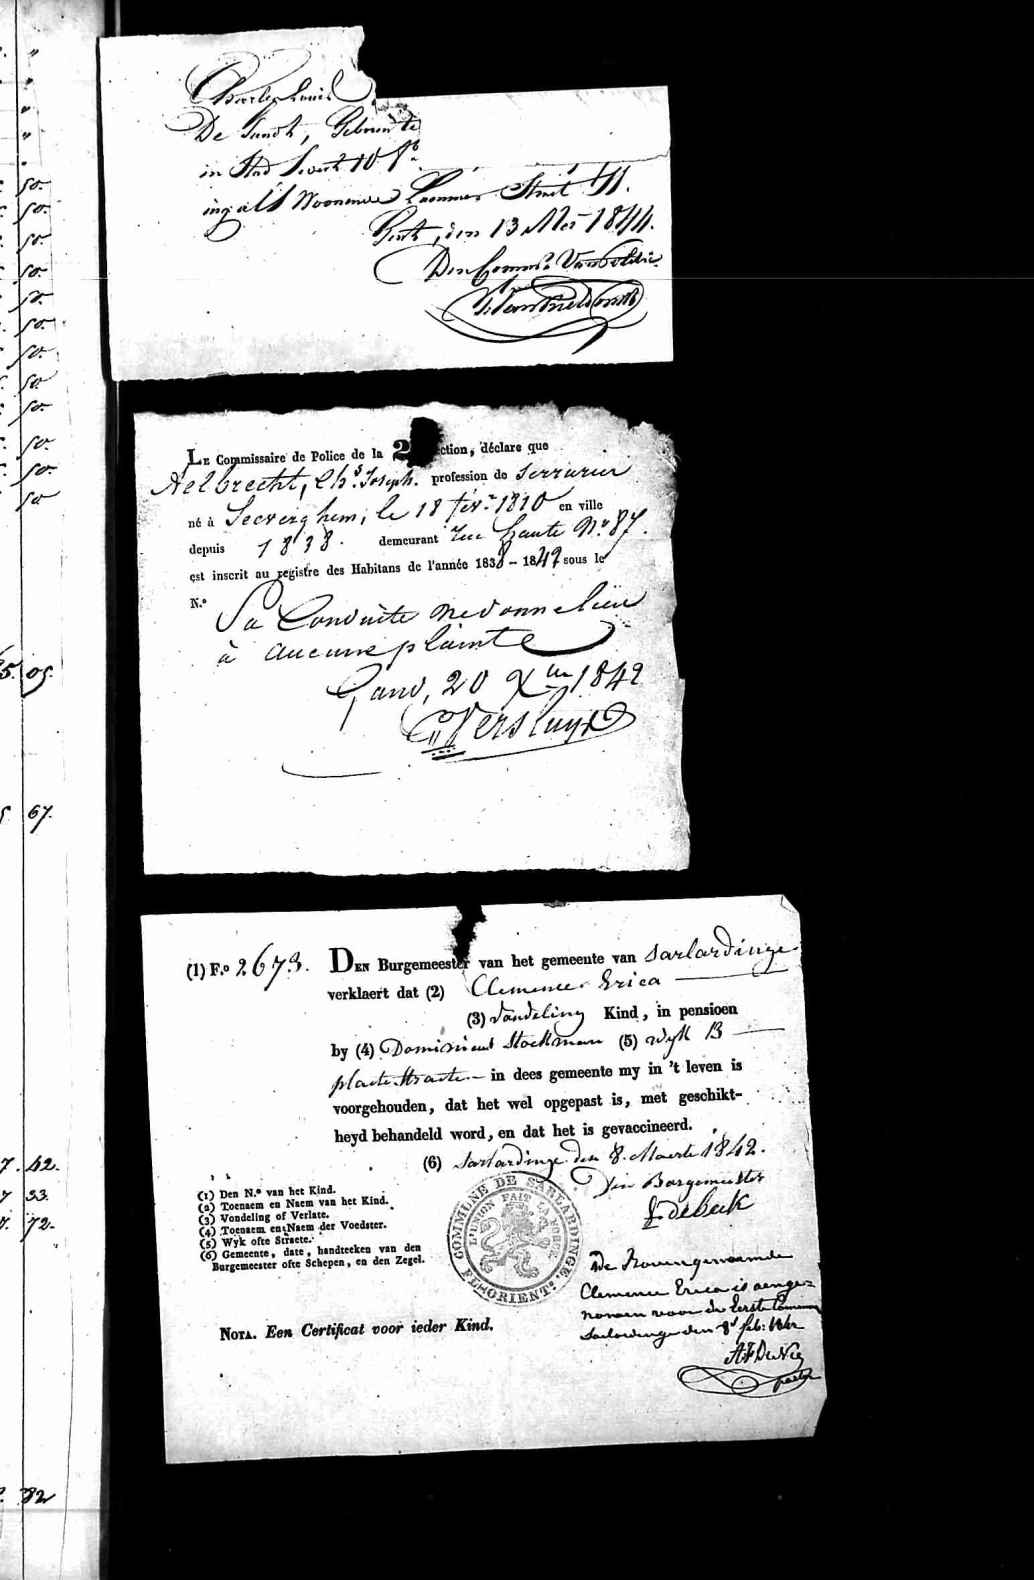 Charles Louis
De Landt, Geboren te
in Stad
Woonende Straet
Gent, den 13 1844.
Den Comms.
LE Commissaire de Police de la 2 ction, déclare que
Aelbrecht, Chs. Joseph. profession de Serrurier
né à Seeverghem, le 18 févr. 1810 en ville
depuis 1838. demeurant rue haute No. 87.
est inscrit au registre des Habitans de l'année 1838 – 1842 sous le
N.o
Sa Conduite ne donne lieu
à aucune plainte
Gand, 20 Xbre 1842
Versluys
(1) F.o 2673. DEN Burgemeester van het gemeente van Sarlardinge
verklaert dat (2) Clemence Erica
(3) Vondeling Kind, in pensioen
by (4) Stockman (5) wyk B
plaete Straete – in dees gemeente my in 't leven is
voorgehouden, dat het wel opgepast is, met geschikt-
heyd behandeld word, en dat het is gevaccineerd.
(6) Sarlardinge den 8. Maerte 1842.
Den Borgemeester
(1) Den N.o van het Kind.
(2) Toenaem en Naem van het Kind.
(3) Vondeling of Verlate.
(4) Toenaem en Naem der Voedster.
(5) Wyk ofte Straete.
(6) Gemeente, date, handteeken van den
Burgemeester ofte Schepen, en den Zegel.
COMMUNE DE SARLARDINGE.
FL. ORIENT.
L'UNION FAIT LA FORCE
De bovengenoemde
Clemence Erica is aenge-
nomen voor de Eerste Communie
Sarlardinge den 8 feb: 1842
pastor
NOTA. Een Certificat voor ieder Kind.
50.
50.
50.
50.
50.
50.
50.
50.
50.
50.
50.
50
05.
67.
42.
33.
72.
82